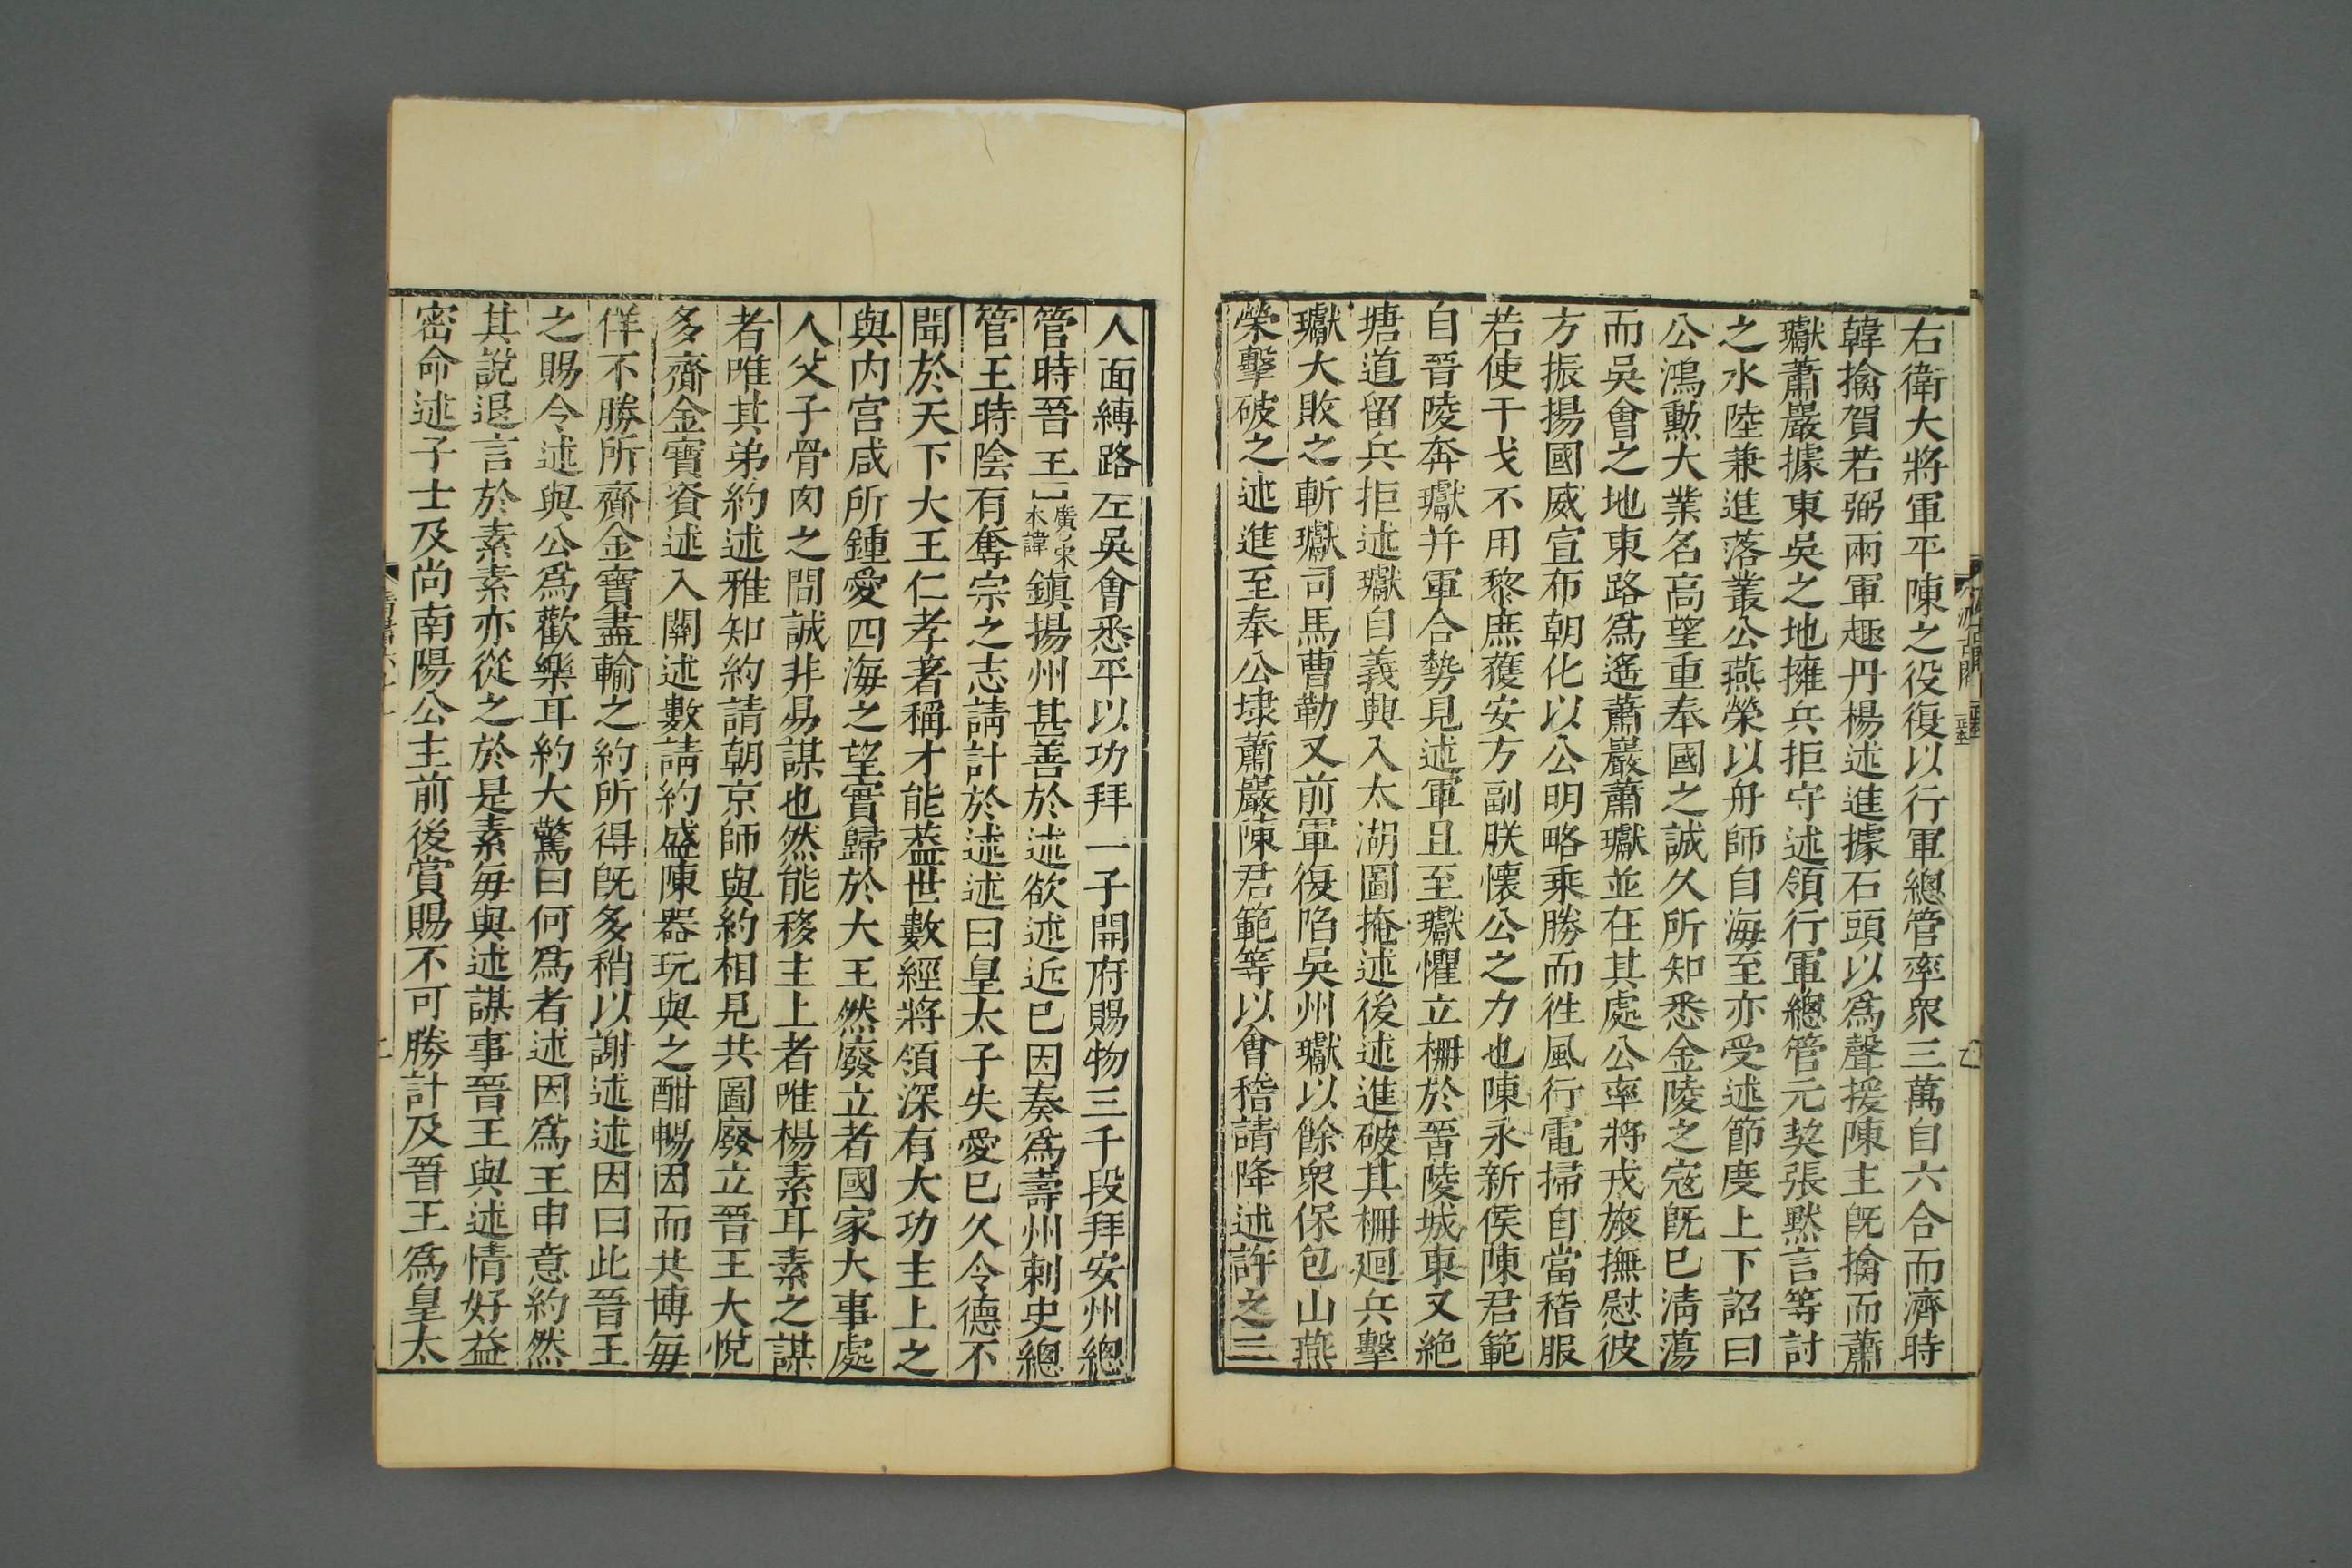 右衛大將軍平陳之役復以行軍總管率衆三萬自六合而濟時
韓擒賀若弼兩軍趣丹楊述進據石頭以爲聲援陳主旣擒而蕭
瓛蕭巖據東吳之地擁兵拒守述領行軍總管元契張默言等討
之水陸兼進落叢公燕榮以舟師自海至亦受述節度上下詔曰
公鴻勲大業名高望重奉國之誠久所知悉金陵之寇旣已淸蕩
而吳會之地東路爲遙蕭巖蕭瓛並在其處公率將戎旅撫慰彼
方振揚國威宣布朝化以公明略乘勝而徃風行電掃自當稽服
若使干戈不用黎庶獲安方副朕懷公之力也陳永新侯陳君範
自晉陵奔瓛幷軍合勢見述軍且至瓛懼立栅於晉陵城東又絶
塘道留兵拒述瓛自義興入太湖圖掩述後述進破其栅廻兵擊
瓛大敗之斬瓛司馬曹勒叉前軍復陷吳州瓛以餘衆保包山燕
榮擊破之述進至奉公埭蕭巖陳君範等以會稽請降述許之二
人面縛路左吳會悉平以功拜一子開府賜物三千段拜安州總
管時晉王廣宋本諱鎮揚州甚善於述欲述近已因奏爲壽州刺史總
管王時陰有奪宗之志請計於述述曰皇太子失愛已久令德不
聞於天下大王仁孝著稱才能葢世數經將領深有大功主上之
與内宫咸所鍾愛四海之望實歸於大王然廢立者國家大事處
人父子骨肉之間誠非易謀也然能移主上者唯楊素耳素之謀
者唯其弟約述雅知約請朝京師與約相見共圖廢立晉王大悅
多齎金寶資述入關述數請約盛陳器玩與之酣暢因而共博毎
佯不勝所齎金寶盡輸之約所得旣多稍以謝述述因曰此晉王
之賜令述與公爲歡樂耳約大驚曰何爲者述因爲王申意約然
其說退言於素素亦從之於是素毎與述謀事晉王與述情好益
密命述子士及尚南陽公主前後賞賜不可勝計及晉王爲皇太